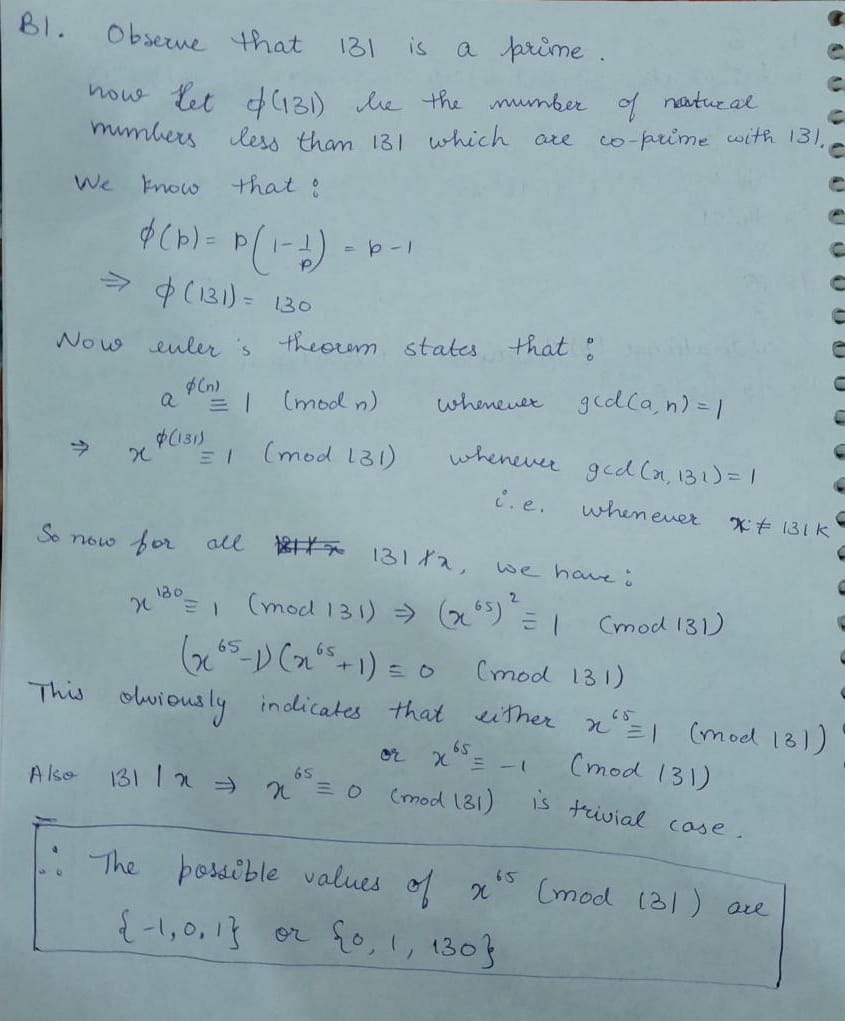 B1. Observe that 131 is a prime.
now let ϕ(131) be the number of natural
numbers less than 131 which are co-prime with 131.
We know that :
ϕ(p) = p(1 - 1/p) = p-1
⇒ ϕ(131) = 130
Now euler's theorem states that :
a^ϕ(n) ≡ 1 (mod n) whenever gcd(a, n) = 1
⇒ x^ϕ(131) ≡ 1 (mod 131) whenever gcd(x, 131) = 1
i.e. whenever x ≠ 131k
So now for all 131 ∤ x, we have :
x^130 ≡ 1 (mod 131) ⇒ (x^65)^2 ≡ 1 (mod 131)
(x^65 - 1)(x^65 + 1) ≡ 0 (mod 131)
This obviously indicates that either x^65 ≡ 1 (mod 131)
or x^65 ≡ -1 (mod 131)
Also 131 | x ⇒ x^65 ≡ 0 (mod 131) is trivial case.
∴ The possible values of x^65 (mod 131) are
{-1, 0, 1} or {0, 1, 130}